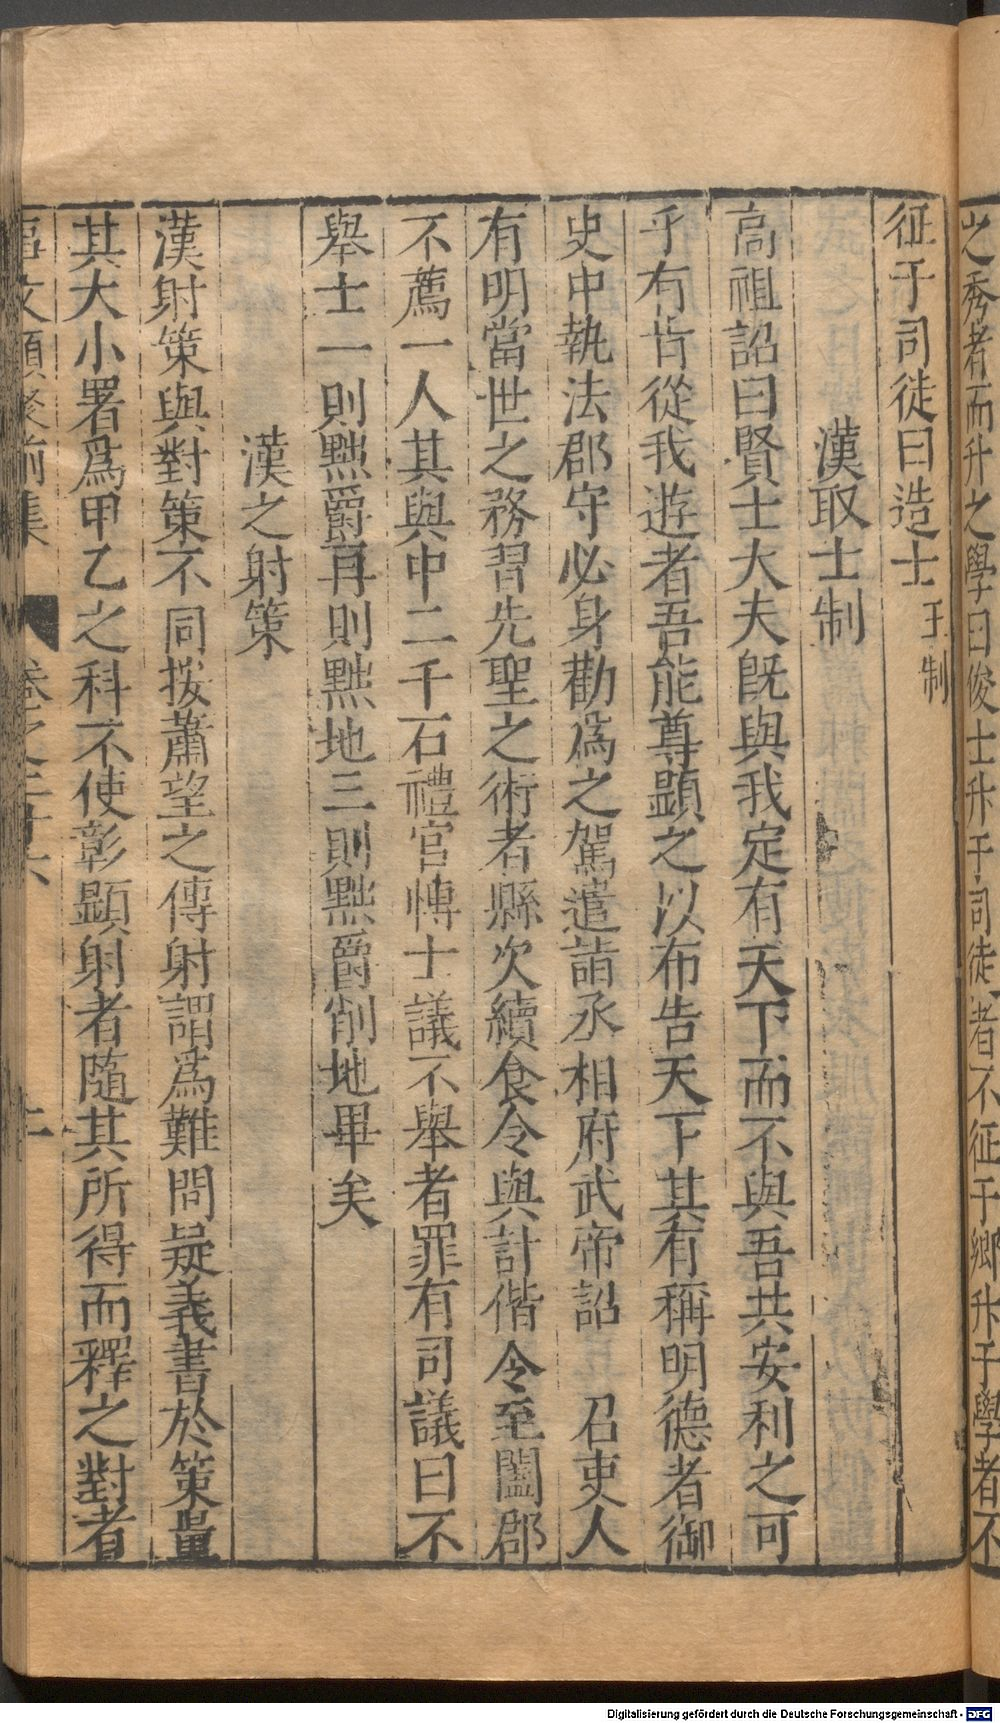 之秀者而升之學曰俊士升于司徒者不征于鄉升于學者不
征于司徒曰造士 王制
漢取士制
高祖詔曰賢士大夫既與我定有天下而不與吾共安利之可
乎有肯從我遊者吾能尊顯之以布告天下其有稱明德者御
史中執法郡守必身勸爲之駕遣詣丞相府武帝詔 召吏人
有明當世之務習先聖之術者縣次續食令與計偕令至闔郡
不薦一人其與中二千石禮官博士議不舉者罪有司議曰不
舉士一則黜爵再則黜地三則黜爵削地畢矣
漢之射策
漢射策與對策不同按蕭望之傳射謂爲難問疑義書於策量
其大小署爲甲乙之科不使彰顯射者隨其所得而釋之對者
事文類聚前集 卷之二十六
Digitalisierung gefördert durch die Deutsche Forschungsgemeinschaft - DFG